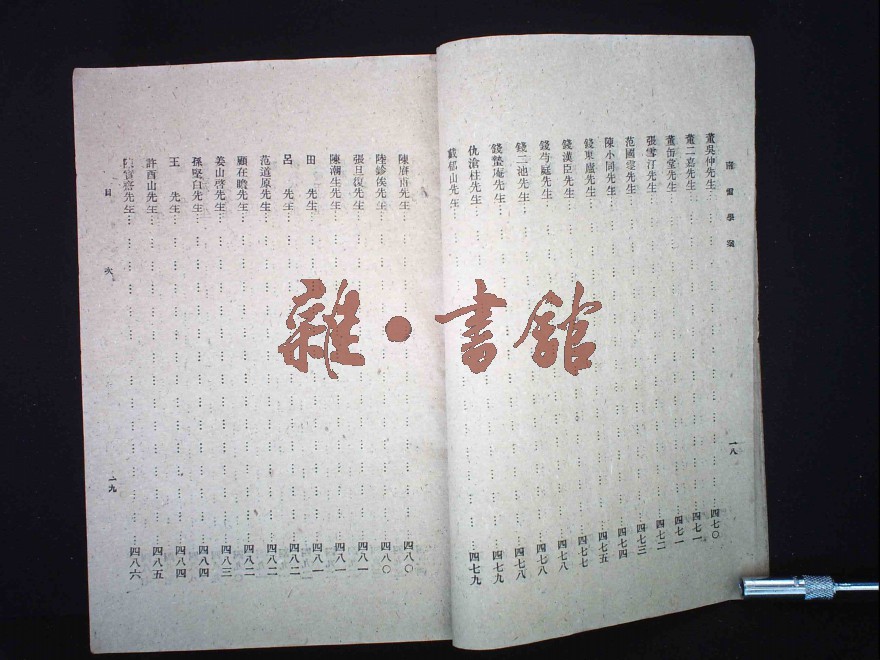 南雷學案
董吳仲先生……四七〇
董二嘉先生……四七一
董缶堂先生……四七一
張雪汀先生……四七二
范國雯先生……四七三
陳小同先生……四七四
錢果廬先生……四七五
錢漢臣先生……四七七
錢芍庭先生……四七八
錢二池先生……四七八
錢蟄庵先生……四七八
仇滄柱先生……四七九
戴郁山先生……四七九
一八
陳 先生……四八〇
陸鉁俟先生……四八〇
張旦復先生……四八一
陳潮生先生……四八一
田 先生……四八一
呂 先生……四八二
范道原先生……四八二
顧在瞻先生……四八二
姜山啓先生……四八三
孫堅白先生……四八四
王 先生……四八四
許酉山先生……四八五
先生……四八六
目次
一九
雜·書館